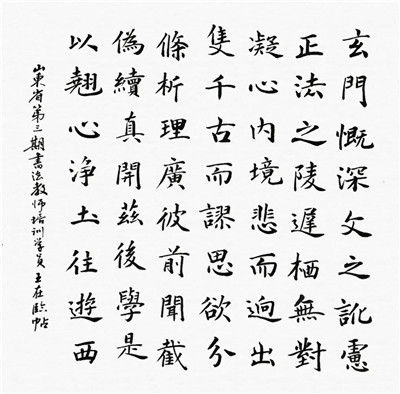 玄門慨深文之訛慮
正法之陵遲栖無對
凝心内境悲而迥出
隻千古而謬思欲分
條析理廣彼前聞截
偽續真開茲後學是
以翹心浄土往遊西
山東省第三期書法教師培训学員王在臨帖